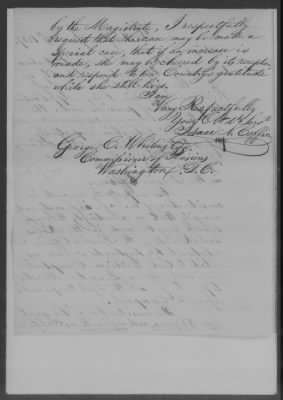 by the Magistrate, I respectfully
request that her case may be made a
Special case, that if an increase is
made, she may be cheered by its reception
and respond to her Country's gratitude
while she still lives.
I am
Very Respectfully
Your Obt Servt
Isaac N. Coffin
George C. Whiting Esq.
Commissioner of Pensions
Washington, D.C.